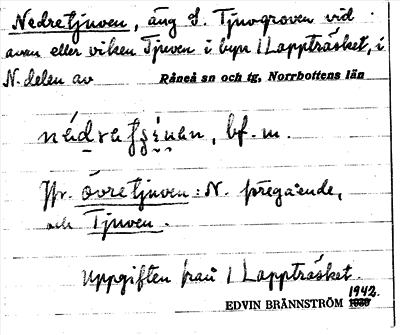 Nedretjuven, äng S. Tjuvgroven vid
avan eller viken Tjuven i byn 1 Lappträsket, i
N. delen av Råneå sn och tg, Norrbottens län
bf. m.
Jfr. övretjuven: N. föregående,
och Tjuven.
Uppgiften från 1 Lappträsket.
1942.
EDVIN BRÄNNSTRÖM